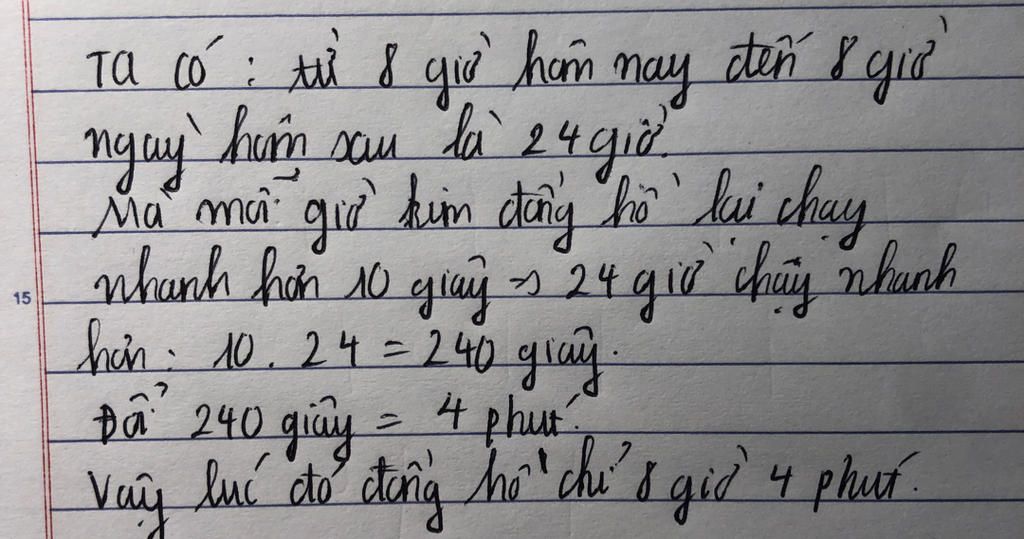 Ta có: từ 8 giờ hôm nay đến 8 giờ
ngày hôm sau là 24 giờ.
Mà mỗi giờ kim đồng hồ lại chạy
nhanh hơn 10 giây → 24 giờ chạy nhanh
hơn: 10 . 24 = 240 giây.
Đổi 240 giây = 4 phút.
Vậy lúc đó đồng hồ chỉ 8 giờ 4 phút.
15